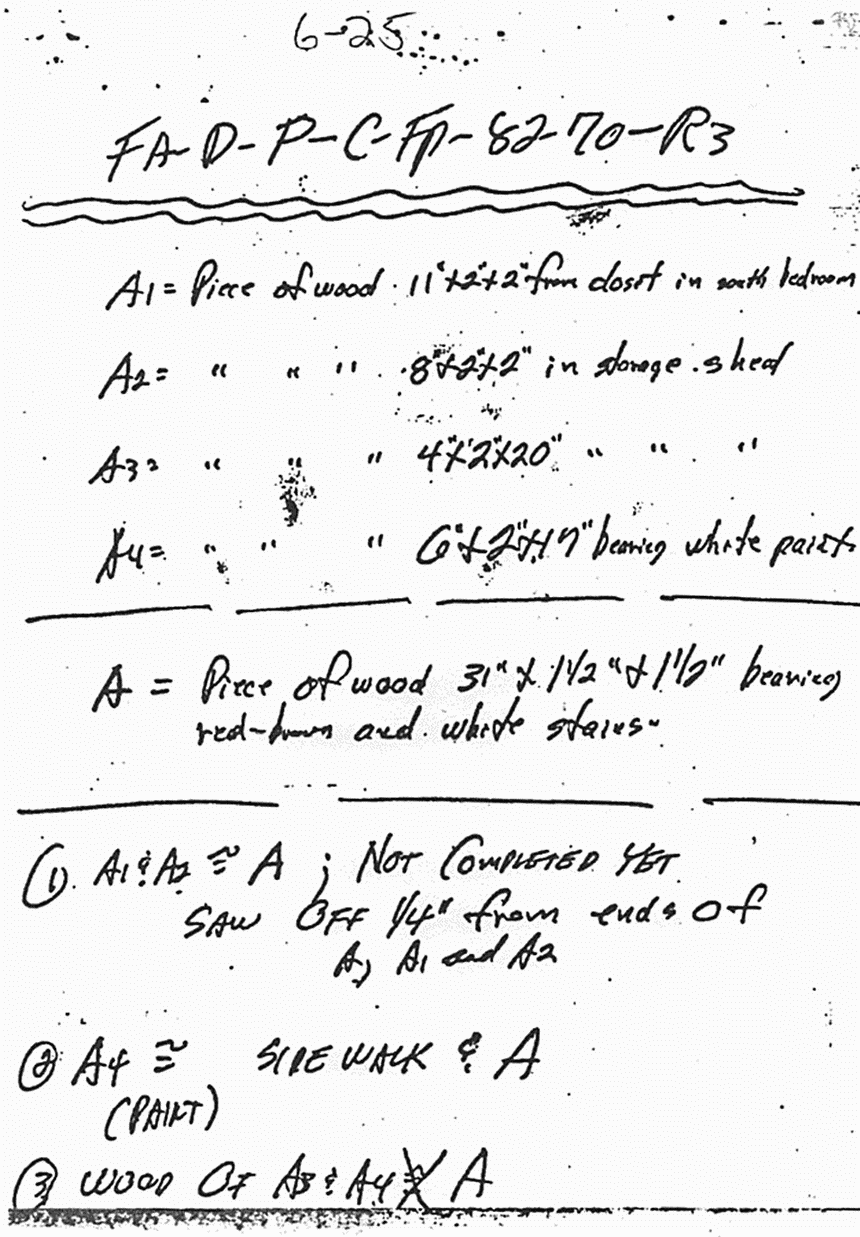 6-25
FA-D-P-C-FP-82-70-R3
A1 = Piece of wood 11"x2"x2" from closet in south bedroom
A2 = " " " 8"x2"x2" in storage shed
A3 = " " " 4"x2"x20" " " "
A4 = " " " 6"x2"x17" bearing white paint
A = Piece of wood 31" x 1 1/2" x 1 1/2" bearing
red-brown and white stains
① A1 & A2 ≅ A ; NOT COMPLETED YET
SAW OFF 1/4" from ends of
A, A1 and A2
② A4 ≅ SIDEWALK & A
(PAINT)
③ WOOD OF A3 & A4 ≇ A